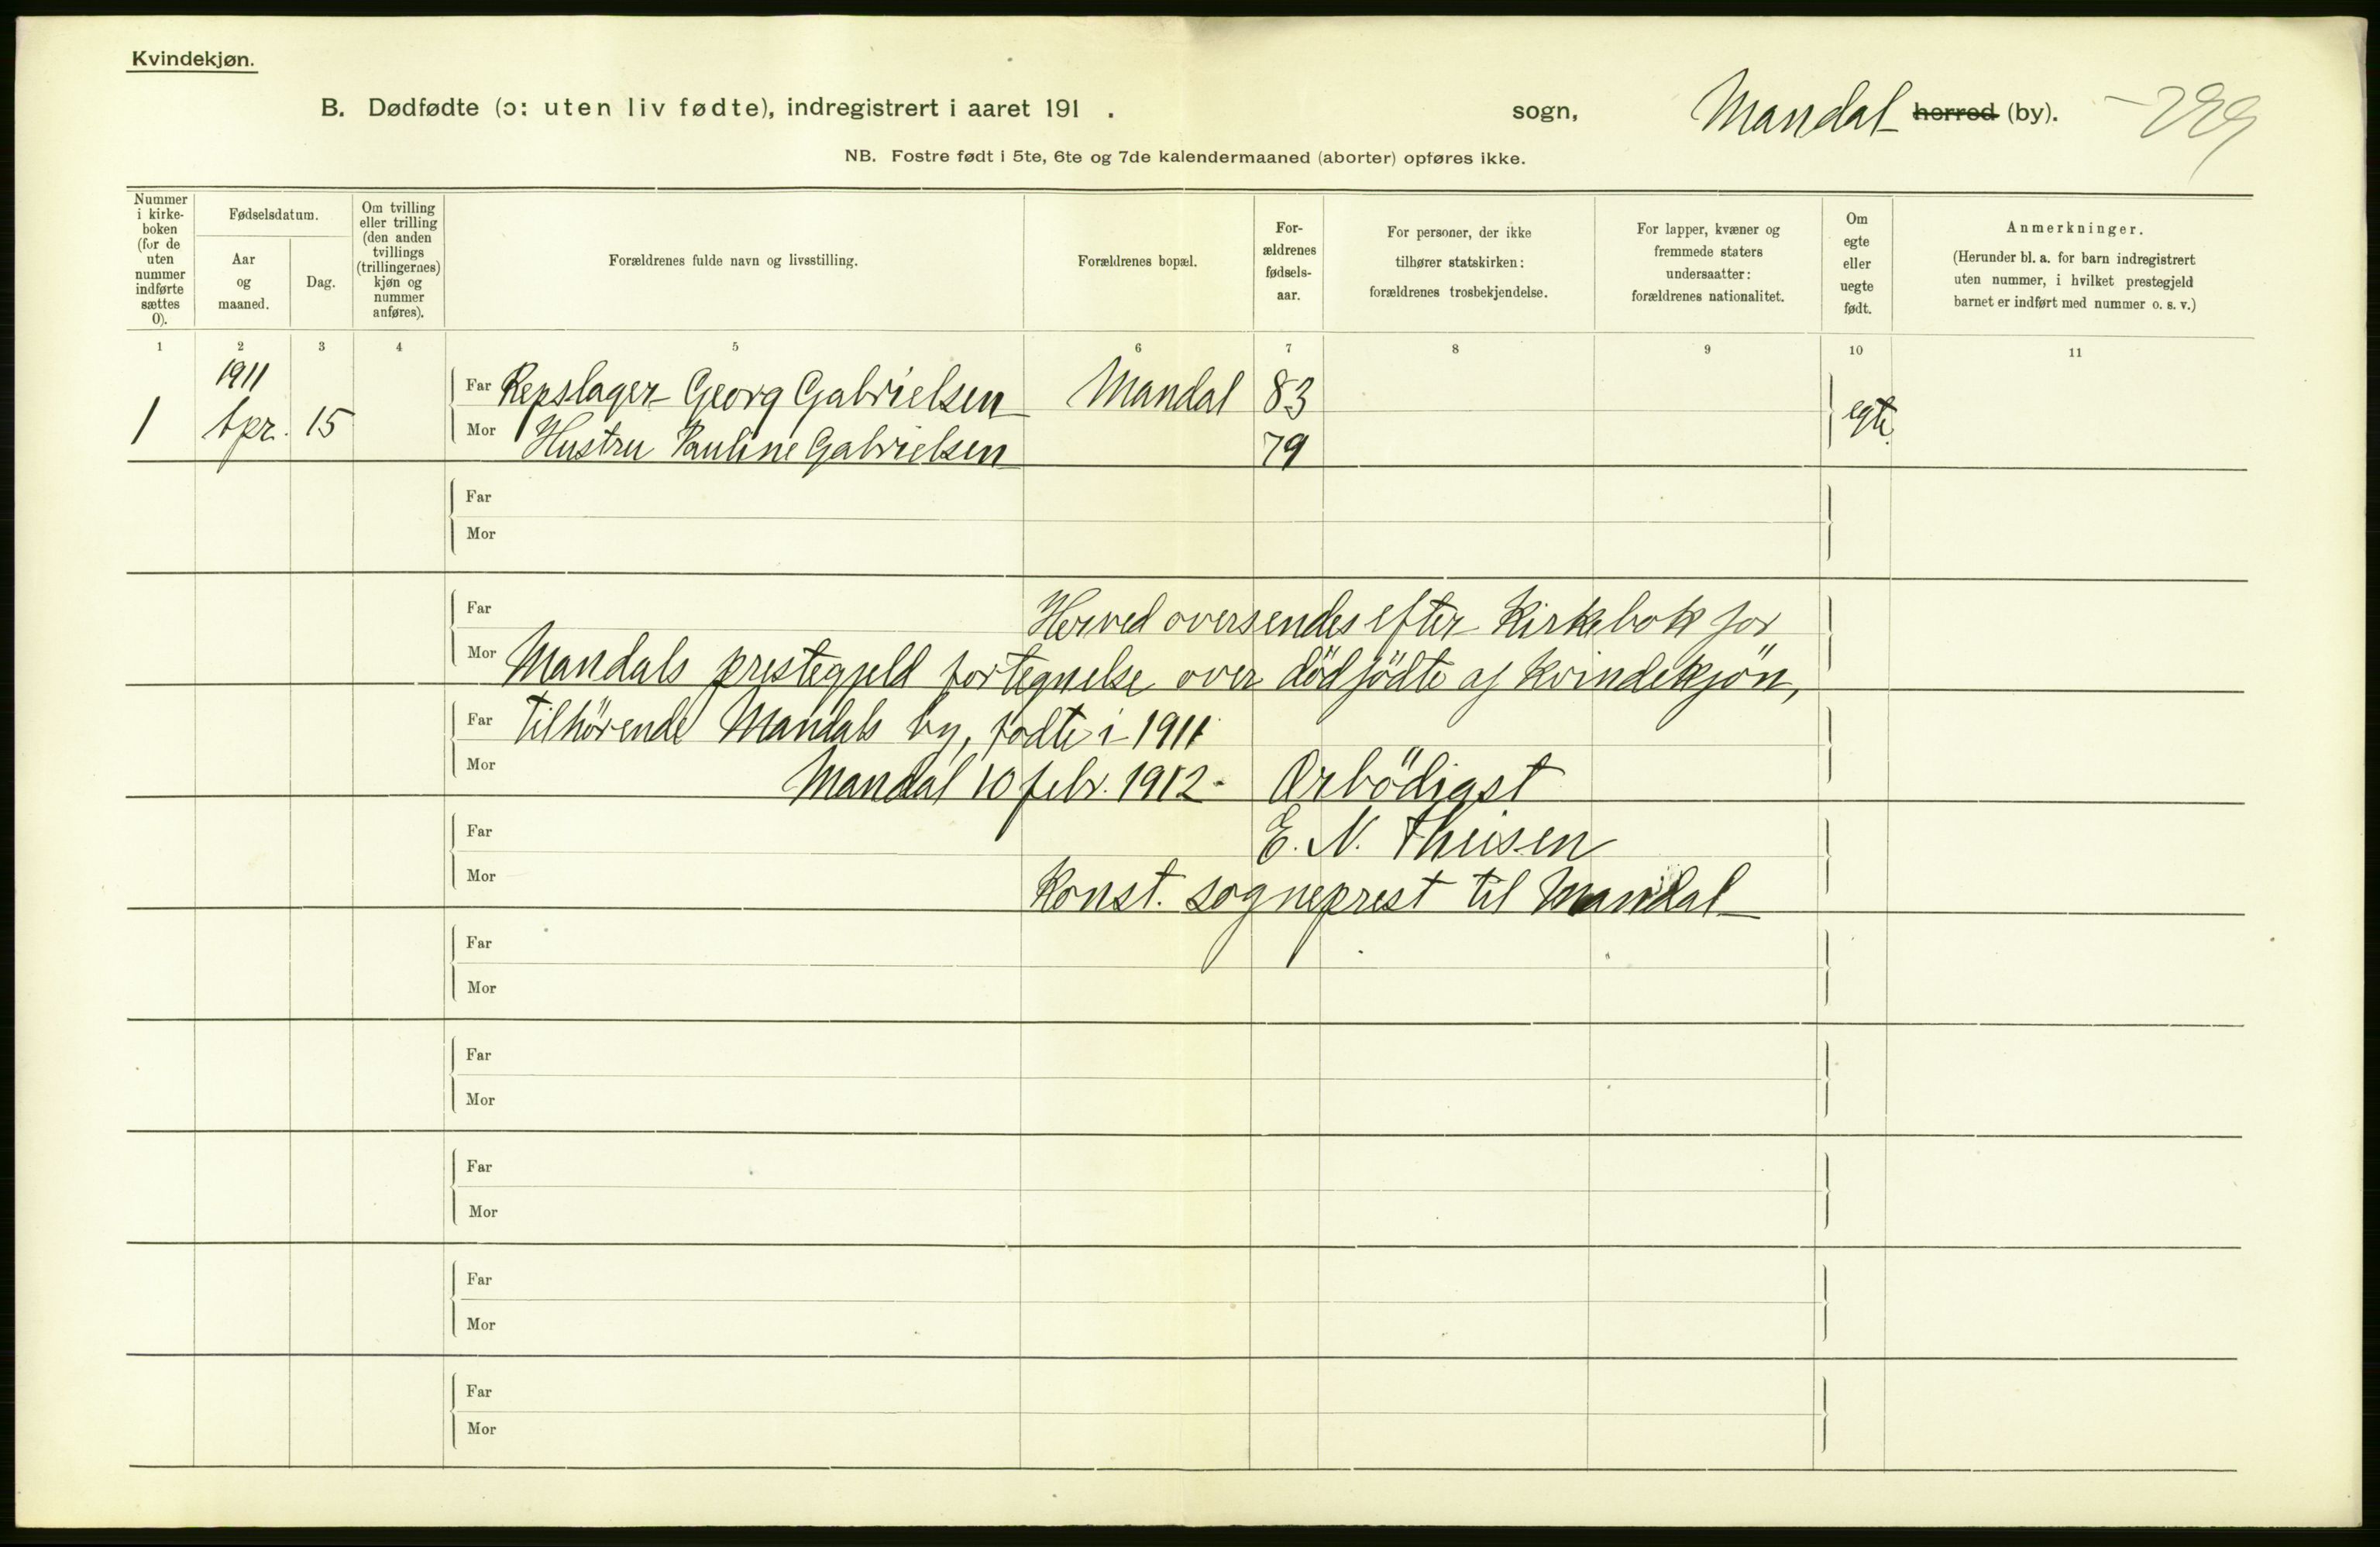 Kvindekjøn.
B. Dødfødte (ɔ: uten liv fødte), indregistrert i aaret 191 . sogn, Mandal herred (by).
NB. Fostre født i 5te, 6te og 7de kalendermaaned (aborter) opføres ikke.
Nummer
i kirke-
boken
(for de
uten
nummer
indførte
sættes
0).
Fødselsdatum.
Aar
og
maaned.
Dag.
Om tvilling
eller trilling
(den anden
tvillings
(trillingernes)
kjøn og
nummer
anføres).
Forældrenes fulde navn og livsstilling.
Forældrenes bopæl.
For-
ældrenes
fødsels-
aar.
For personer, der ikke
tilhører statskirken:
forældrenes trosbekjendelse.
For lapper, kvæner og
fremmede staters
undersaatter:
forældrenes nationalitet.
Om
egte
eller
uegte
født.
Anmerkninger.
(Herunder bl. a. for barn indregistrert
uten nummer, i hvilket prestegjeld
barnet er indført med nummer o. s. v.)
1 2 3 4 5 6 7 8 9 10 11
1911
Far Repslager Georg Gabrielsen Mandal 83
1 Apr. 15 egte
Mor Hustru Pauline Gabrielsen 79
Far
Mor
Far Herved oversendes efter Kirkebok for
Mor Mandals prestegjeld fortegnelse over dödfödte af kvindekjön,
Far tilhörende Mandals by, födte i 1911
Mor Mandal 10 febr. 1912. Ærbödigst
Far E. N. Thiisen
Mor Konst. sogneprest til Mandal
Far
Mor
Far
Mor
Far
Mor
Far
Mor
Far
Mor